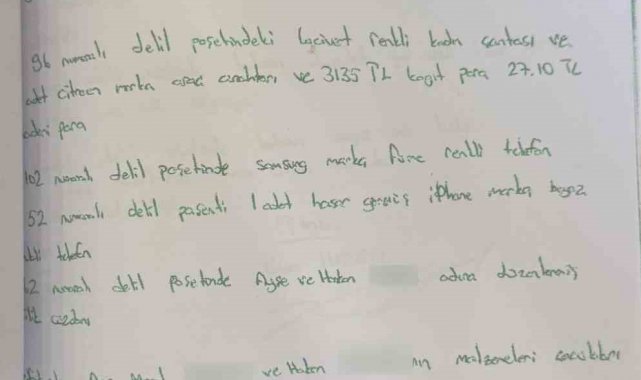 96 numaralı delil poşetindeki lacivet renkli kadın çantası ve
adet citroen marka araç anahtarı ve 3135 TL kagıt para 27.10 TL
para
102 numaralı delil poşetinde samsung marka füme renkli telefon
52 numaralı delil poşenti 1 adet hasar görmüş iphone marka beyaz
telefon
2 numaralı delil poşetinde Ayşe ve Hakan adına düzenlenmiş
cüzdanı
ve Hakan ın malzemeleri çocukları